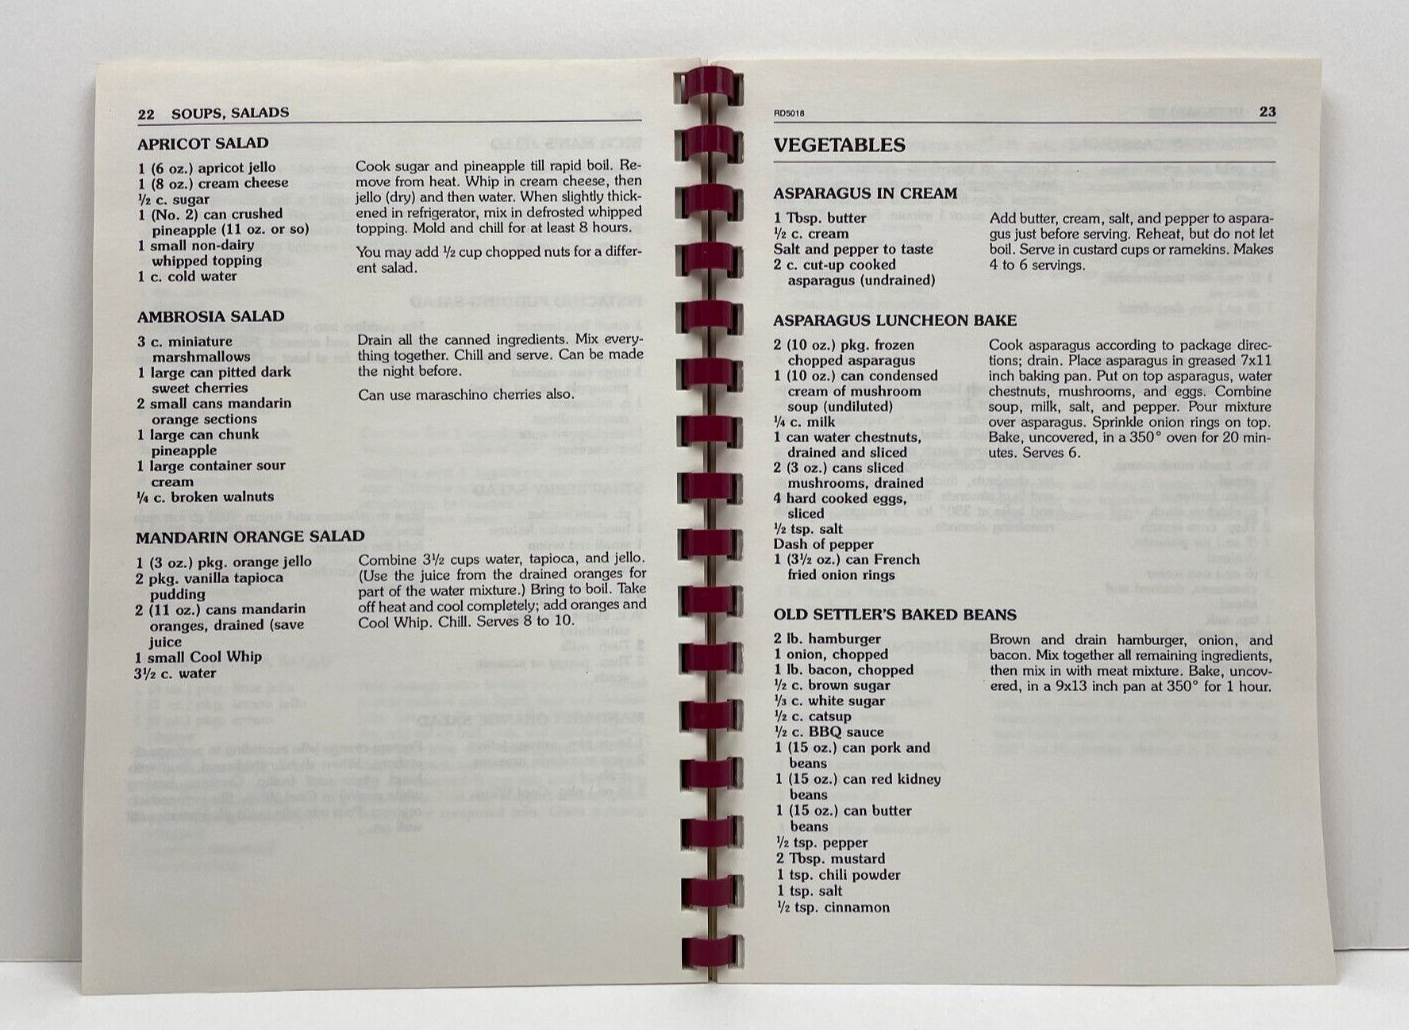 22 SOUPS, SALADS
APRICOT SALAD
1 (6 oz.) apricot jello
1 (8 oz.) cream cheese
½ c. sugar
1 (No. 2) can crushed
pineapple (11 oz. or so)
1 small non-dairy
whipped topping
1 c. cold water
Cook sugar and pineapple till rapid boil. Re-
move from heat. Whip in cream cheese, then
jello (dry) and then water. When slightly thick-
ened in refrigerator, mix in defrosted whipped
topping. Mold and chill for at least 8 hours.
You may add ½ cup chopped nuts for a differ-
ent salad.
AMBROSIA SALAD
3 c. miniature
marshmallows
1 large can pitted dark
sweet cherries
2 small cans mandarin
orange sections
1 large can chunk
pineapple
1 large container sour
cream
¼ c. broken walnuts
Drain all the canned ingredients. Mix every-
thing together. Chill and serve. Can be made
the night before.
Can use maraschino cherries also.
MANDARIN ORANGE SALAD
1 (3 oz.) pkg. orange jello
2 pkg. vanilla tapioca
pudding
2 (11 oz.) cans mandarin
oranges, drained (save
juice
1 small Cool Whip
3½ c. water
Combine 3½ cups water, tapioca, and jello.
(Use the juice from the drained oranges for
part of the water mixture.) Bring to boil. Take
off heat and cool completely; add oranges and
Cool Whip. Chill. Serves 8 to 10.
RD5018 23
VEGETABLES
ASPARAGUS IN CREAM
1 Tbsp. butter
½ c. cream
Salt and pepper to taste
2 c. cut-up cooked
asparagus (undrained)
Add butter, cream, salt, and pepper to aspara-
gus just before serving. Reheat, but do not let
boil. Serve in custard cups or ramekins. Makes
4 to 6 servings.
ASPARAGUS LUNCHEON BAKE
2 (10 oz.) pkg. frozen
chopped asparagus
1 (10 oz.) can condensed
cream of mushroom
soup (undiluted)
¼ c. milk
1 can water chestnuts,
drained and sliced
2 (3 oz.) cans sliced
mushrooms, drained
4 hard cooked eggs,
sliced
½ tsp. salt
Dash of pepper
1 (3½ oz.) can French
fried onion rings
Cook asparagus according to package direc-
tions; drain. Place asparagus in greased 7x11
inch baking pan. Put on top asparagus, water
chestnuts, mushrooms, and eggs. Combine
soup, milk, salt, and pepper. Pour mixture
over asparagus. Sprinkle onion rings on top.
Bake, uncovered, in a 350° oven for 20 min-
utes. Serves 6.
OLD SETTLER'S BAKED BEANS
2 lb. hamburger
1 onion, chopped
1 lb. bacon, chopped
½ c. brown sugar
⅓ c. white sugar
½ c. catsup
½ c. BBQ sauce
1 (15 oz.) can pork and
beans
1 (15 oz.) can red kidney
beans
1 (15 oz.) can butter
beans
½ tsp. pepper
2 Tbsp. mustard
1 tsp. chili powder
1 tsp. salt
½ tsp. cinnamon
Brown and drain hamburger, onion, and
bacon. Mix together all remaining ingredients,
then mix in with meat mixture. Bake, uncov-
ered, in a 9x13 inch pan at 350° for 1 hour.